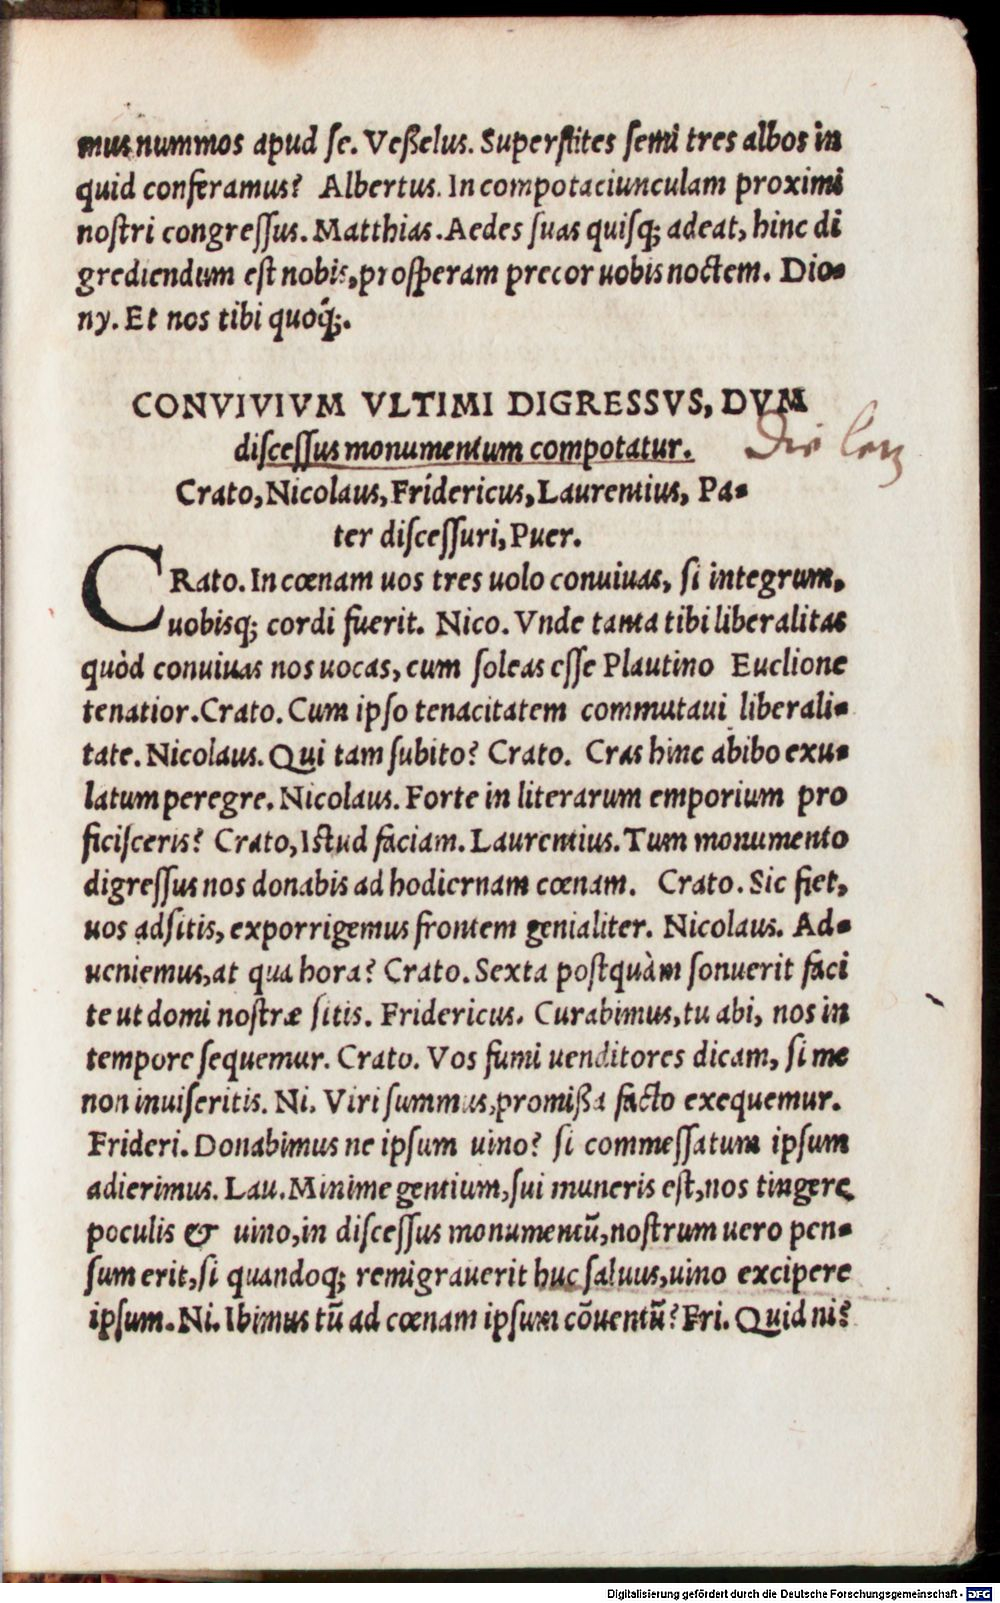 mus nummos apud se. Veßelus. Superstites semi tres albos in
quid conferamus? Albertus. In compotaciunculam proximi
nostri congressus. Matthias. Aedes suas quisq; adeat, hinc di
grediendum est nobis, prosperam precor uobis noctem. Dio-
ny. Et nos tibi quoq́;.
CONVIVIVM VLTIMI DIGRESSVS, DVM
discessus monumentum compotatur.
Die
Crato, Nicolaus, Fridericus, Laurentius, Pa-
ter discessuri, Puer.
CRato. In cœnam uos tres uolo conuiuas, si integrum,
uobisq; cordi fuerit. Nico. Vnde tanta tibi liberalitas
quòd conuiuas nos uocas, cum soleas esse Plautino Euclione
tenatior. Crato. Cum ipso tenacitatem commutaui liberali-
tate. Nicolaus. Qui tam subito? Crato. Cras hinc abibo exu-
latum peregre. Nicolaus. Forte in literarum emporium pro
ficisceris? Crato, Istud faciam. Laurentius. Tum monumento
digressus nos donabis ad hodiernam cœnam. Crato. Sic fiet,
uos adsitis, exporrigemus frontem genialiter. Nicolaus. Ad-
ueniemus, at qua hora? Crato. Sexta postquàm sonuerit faci
te ut domi nostræ sitis. Fridericus. Curabimus, tu abi, nos in
tempore sequemur. Crato. Vos fumi uenditores dicam, si me
non inuiseritis. Ni. Viri summus, promißa facto exequemur.
Frideri. Donabimus ne ipsum uino? si commessatum ipsum
adierimus. Lau. Minime gentium, sui muneris est, nos tingere
poculis & uino, in discessus monumentū, nostrum uero pen-
sum erit, si quandoq; remigrauerit huc saluus, uino excipere
ipsum. Ni. Ibimus tū ad cœnam ipsum cōuentū? Fri. Quid ni?
Digitalisierung gefördert durch die Deutsche Forschungsgemeinschaft - DFG